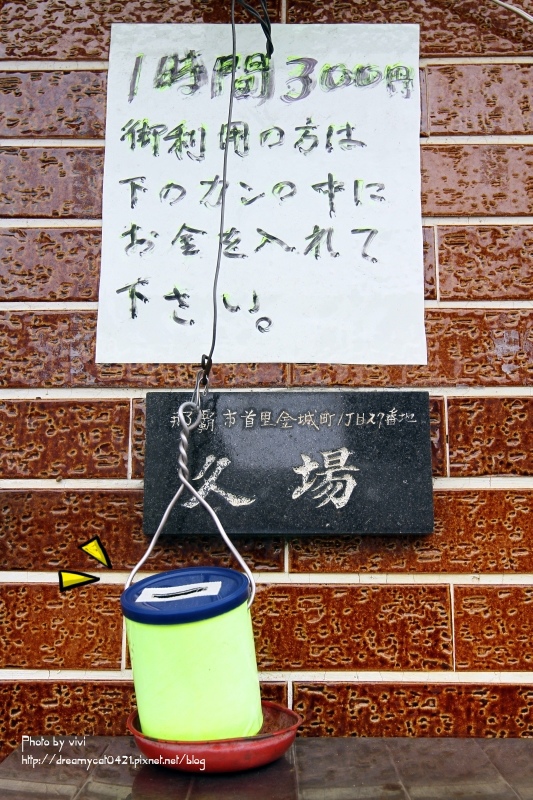 1時間300円
御利用の方は
下のカンの中に
お金を入れて
下さい。
那覇市首里金城町1丁目27番地
久場
Photo by vivi
http://dreamycat0421.pixnet.net/blog